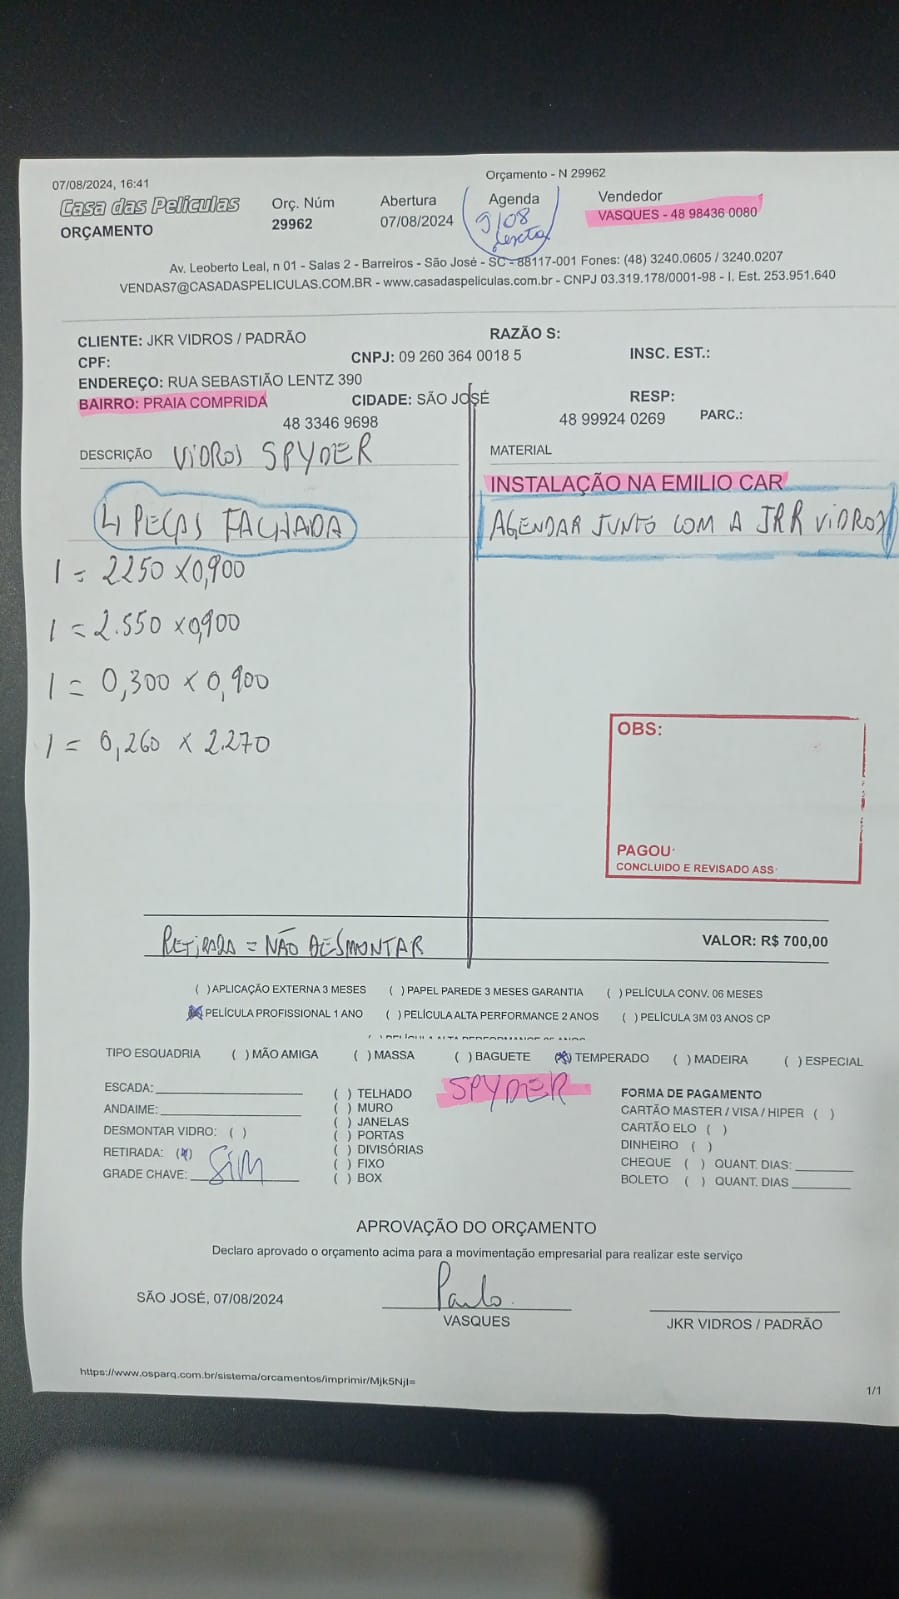 07/08/2024, 16:41
Orçamento - N 29962
Casa das Películas
ORÇAMENTO
Orç. Núm
29962
Abertura
07/08/2024
Agenda
9/08
sexta
Vendedor
VASQUES - 48 98436 0080
Av. Leoberto Leal, n 01 - Salas 2 - Barreiros - São José - SC - 88117-001 Fones: (48) 3240.0605 / 3240.0207
VENDAS7@CASADASPELICULAS.COM.BR - www.casadaspeliculas.com.br - CNPJ 03.319.178/0001-98 - I. Est. 253.951.640
CLIENTE: JKR VIDROS / PADRÃO RAZÃO S:
CPF: CNPJ: 09 260 364 0018 5 INSC. EST.:
ENDEREÇO: RUA SEBASTIÃO LENTZ 390
BAIRRO: PRAIA COMPRIDA CIDADE: SÃO JOSÉ RESP:
48 3346 9698 48 99924 0269 PARC.:
DESCRIÇÃO VIDROS SPYDER
MATERIAL
INSTALAÇÃO NA EMILIO CAR
4 PEÇAS FACHADA
AGENDAR JUNTO COM A JRR VIDROS
1 = 2250 x 0,900
1 = 2.550 x 0,900
1 = 0,300 x 0,900
1 = 0,260 x 2.270
OBS:
PAGOU:
CONCLUIDO E REVISADO ASS:
RETIRADA = NÃO DESMONTAR
VALOR: R$ 700,00
( ) APLICAÇÃO EXTERNA 3 MESES ( ) PAPEL PAREDE 3 MESES GARANTIA ( ) PELÍCULA CONV. 06 MESES
(X) PELÍCULA PROFISSIONAL 1 ANO ( ) PELÍCULA ALTA PERFORMANCE 2 ANOS ( ) PELÍCULA 3M 03 ANOS CP
TIPO ESQUADRIA ( ) MÃO AMIGA ( ) MASSA ( ) BAGUETE (X) TEMPERADO ( ) MADEIRA ( ) ESPECIAL
SPYDER
ESCADA:
ANDAIME:
DESMONTAR VIDRO: ( )
RETIRADA: (X)
GRADE CHAVE: Sim
( ) TELHADO
( ) MURO
( ) JANELAS
( ) PORTAS
( ) DIVISÓRIAS
( ) FIXO
( ) BOX
FORMA DE PAGAMENTO
CARTÃO MASTER / VISA / HIPER ( )
CARTÃO ELO ( )
DINHEIRO ( )
CHEQUE ( ) QUANT. DIAS:
BOLETO ( ) QUANT. DIAS
APROVAÇÃO DO ORÇAMENTO
Declaro aprovado o orçamento acima para a movimentação empresarial para realizar este serviço
SÃO JOSÉ, 07/08/2024
Paulo
VASQUES
JKR VIDROS / PADRÃO
https://www.osparq.com.br/sistema/orcamentos/imprimir/Mjk5NjI=
1/1